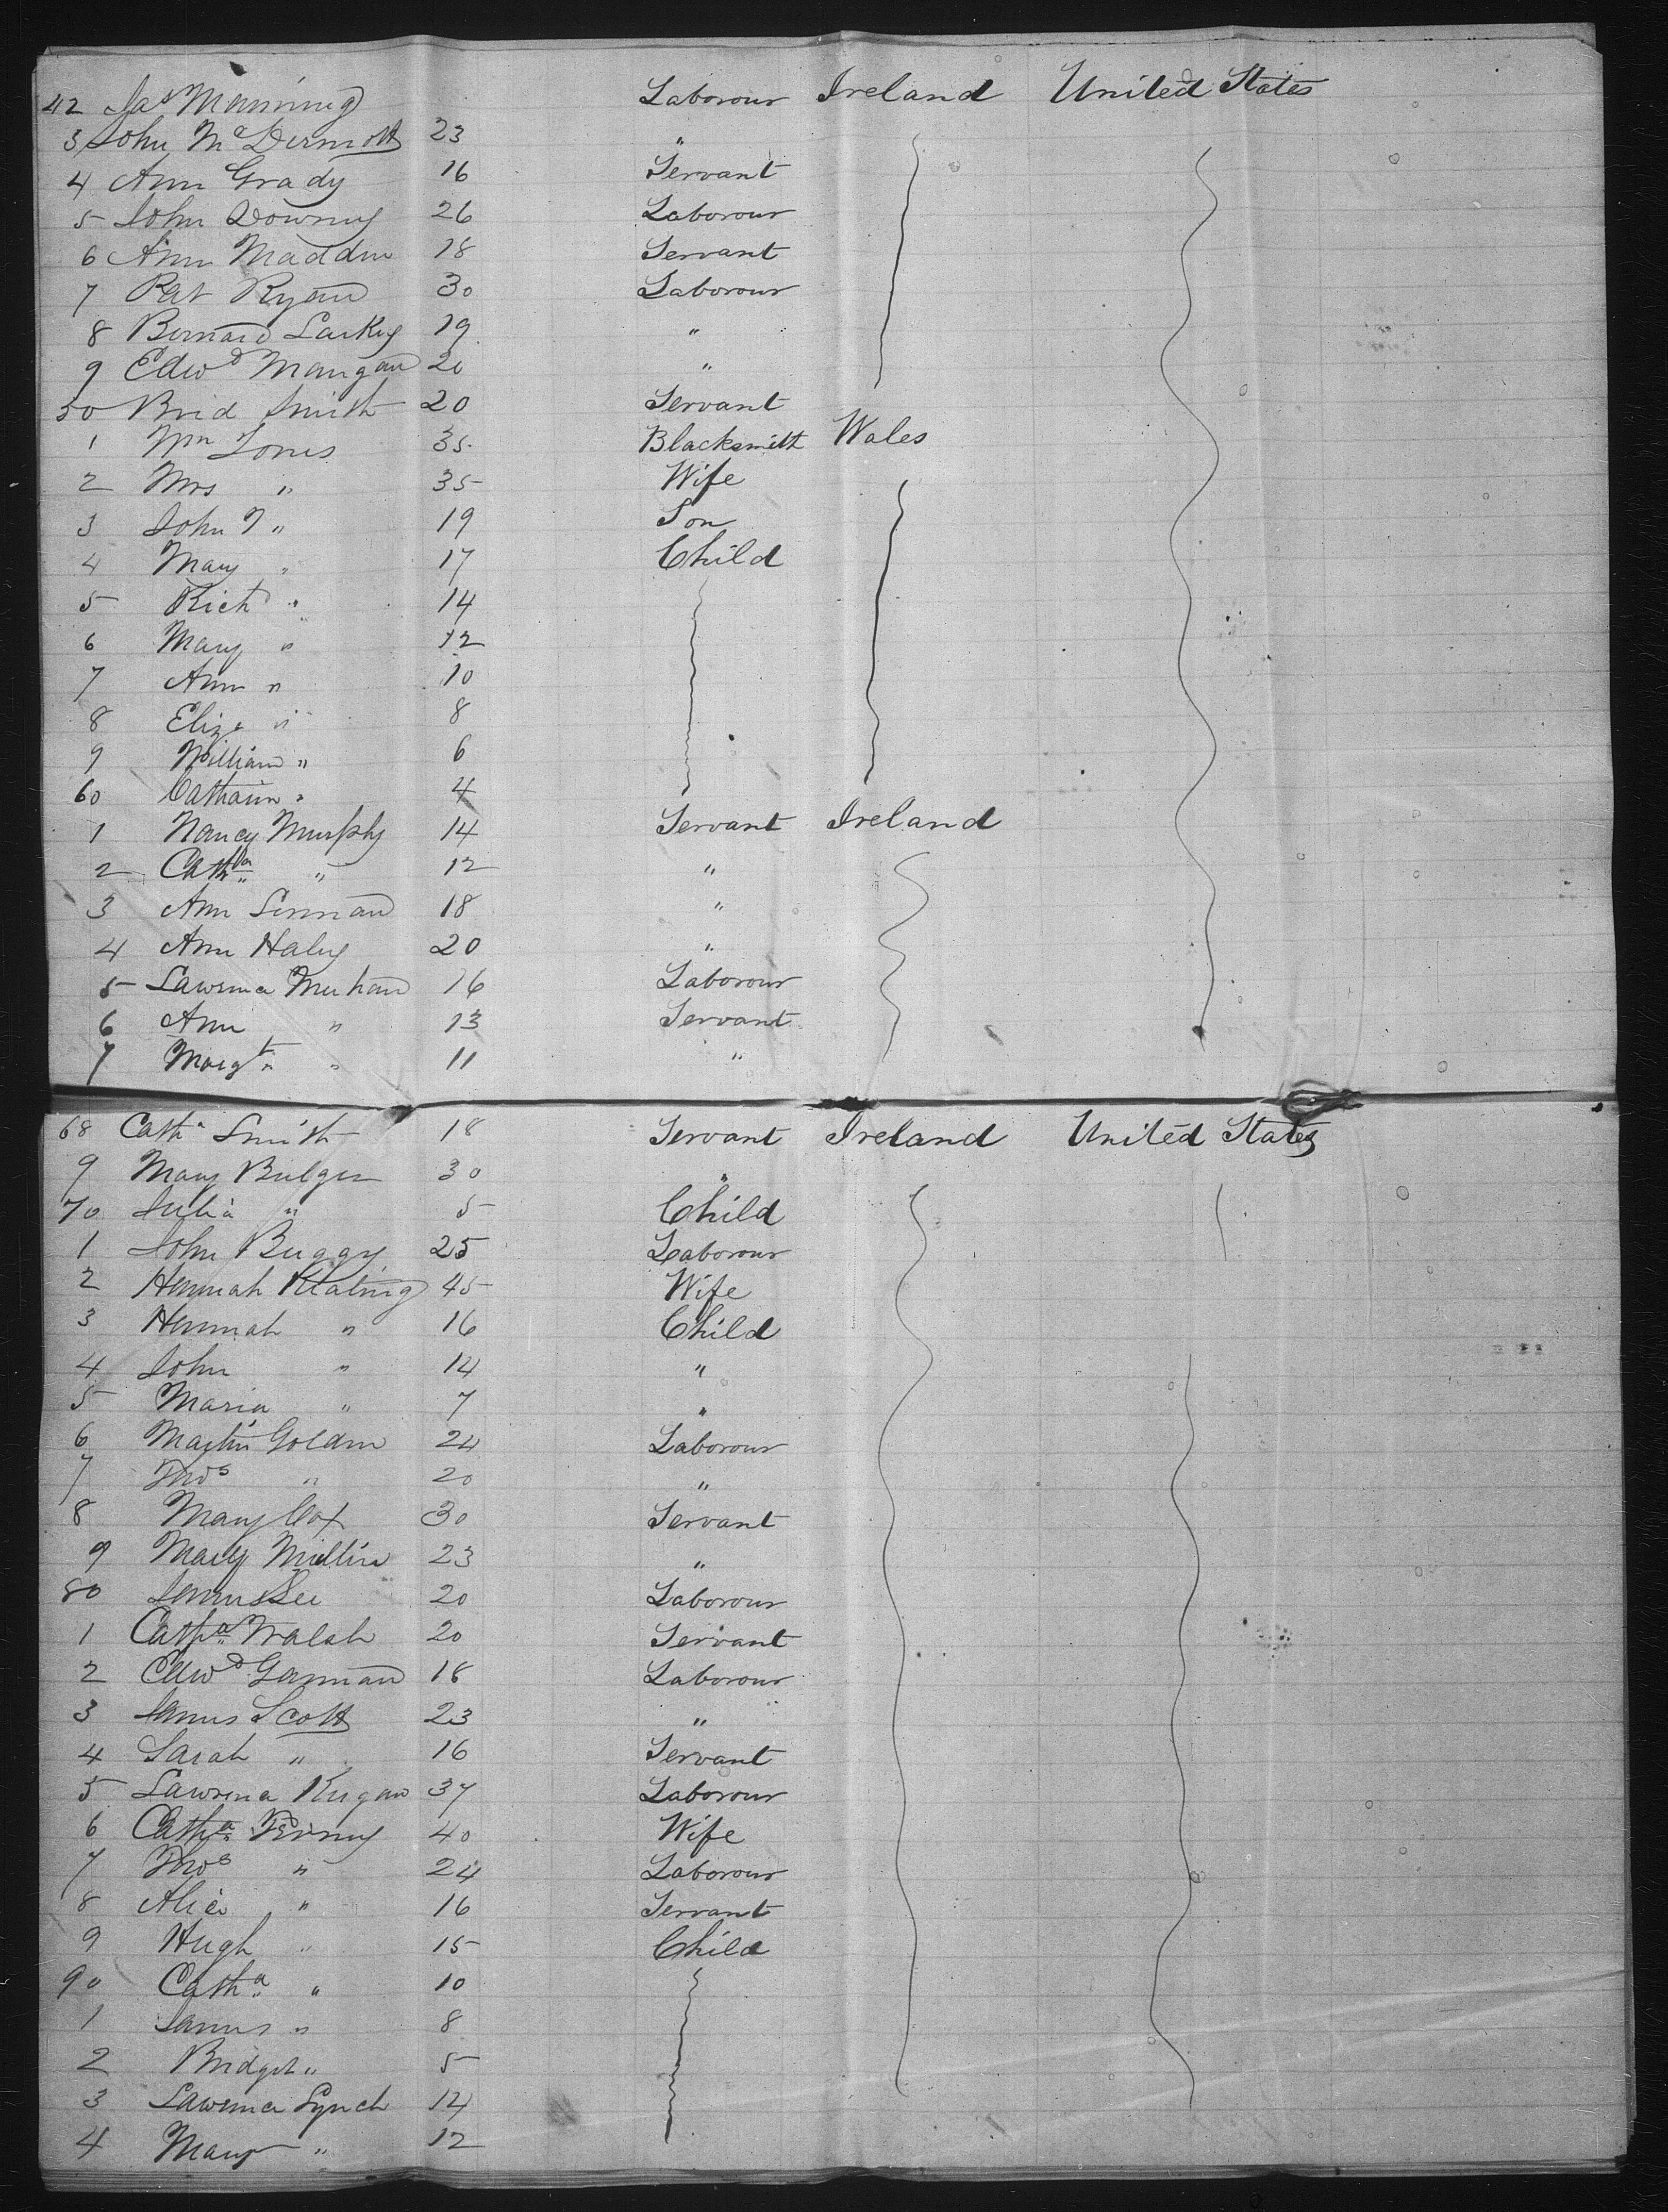 42 Jas Manning Laborour Ireland United States
3 John McDermott 23 "
4 Ann Grady 16 Servant
5 John Downey 26 Laborour
6 Ann Madden 18 Servant
7 Pat Ryan 30 Laborour
8 Bernard Larkey 19 "
9 Edwd Mangan 20 "
50 Brid Smith 20 Servant
1 Wm Jones 35 Blacksmith Wales
2 Mrs " 35 Wife
3 John T " 19 Son
4 Mary " 17 Child
5 Richd " 14
6 Mary " 12
7 Ann " 10
8 Eliza " 8
9 William " 6
60 Catharin " 4
1 Nancy Murphy 14 Servant Ireland
2 Catha " 12 "
3 Ann 18 "
4 Ann Haley 20 "
5 Lawrence Meehan 16 Laborour
6 Ann " 13 Servant
7 Margt " 11 "
68 Catha Smith 18 Servant Ireland United States
9 Mary Bulger 30 "
70 Julia " 5 Child
1 John Buggy 25 Laborour
2 Hannah Keating 45 Wife
3 Hannah " 16 Child
4 John " 14 "
5 Maria " 7 "
6 Martin Golden 24 Laborour
7 Thos " 20 "
8 Mary Cox 30 Servant
9 Mary 23 "
80 James Lee 20 Laborour
1 Catha Walsh 20 Servant
2 Edwd Gorman 18 Laborour
3 James Scott 23 "
4 Sarah " 16 Servant
5 Lawrence 37 Laborour
6 Catha 40 Wife
7 Thos " 24 Laborour
8 Alice " 16 Servant
9 Hugh " 15 Child
90 Catha " 10
1 James " 8
2 Bridget " 5
3 Lawrence Lynch 14
4 Mary " 12